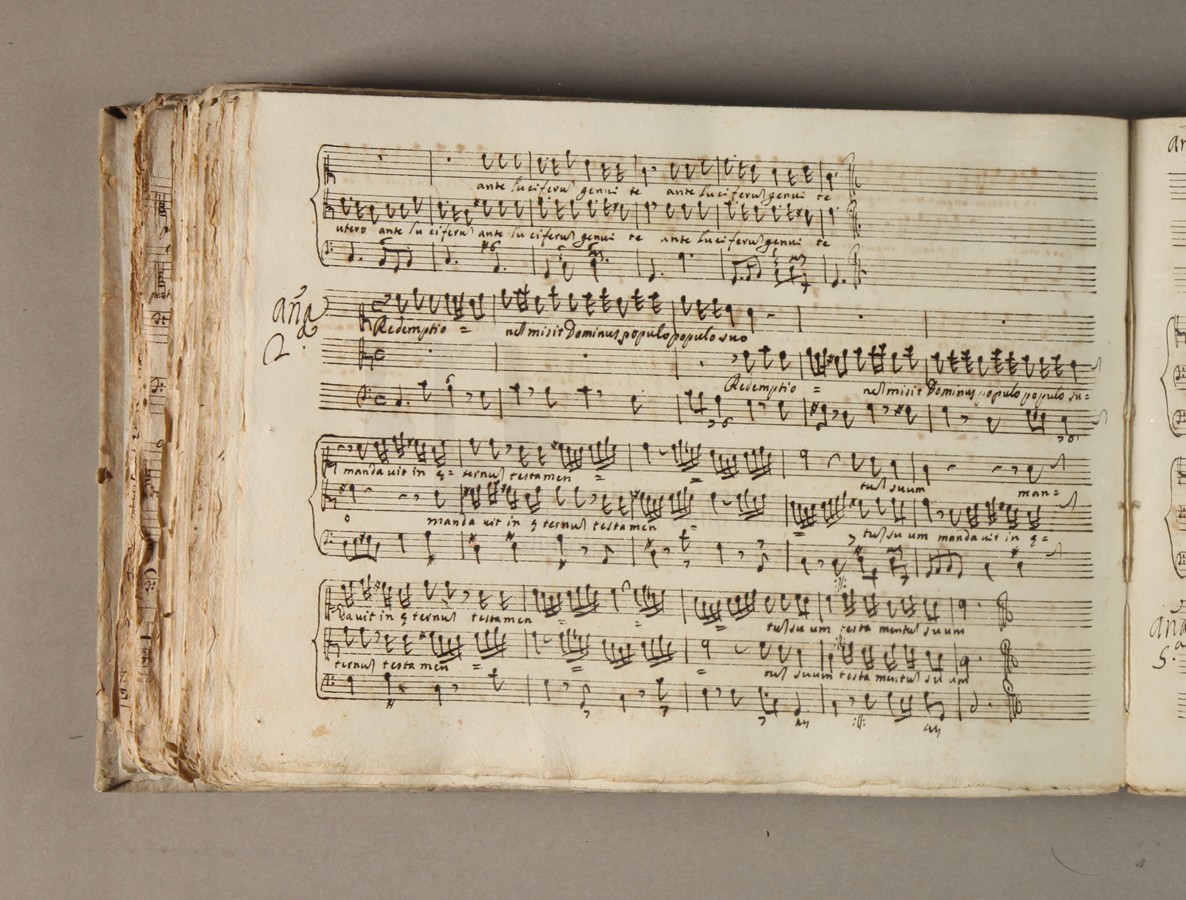 ante luciferu genui te ante luciferu genui te
utero ante luciferu ante luciferu genui te ante luciferu genui te
aña 2.a
Redemptio = ne misit Dominus populo populo suo
Redemptio = ne misit Dominus populo populo su=
mandauit in ę= ternu testamen = = tu suum man=
o manda uit in ę ternu testamen = = tu su um mandauit in ę=
dauit in ę ternu testamen = = = tu su um testa mentu suum
ternu testa men = = = tu suum testa mentu su um
an
aña
5.a